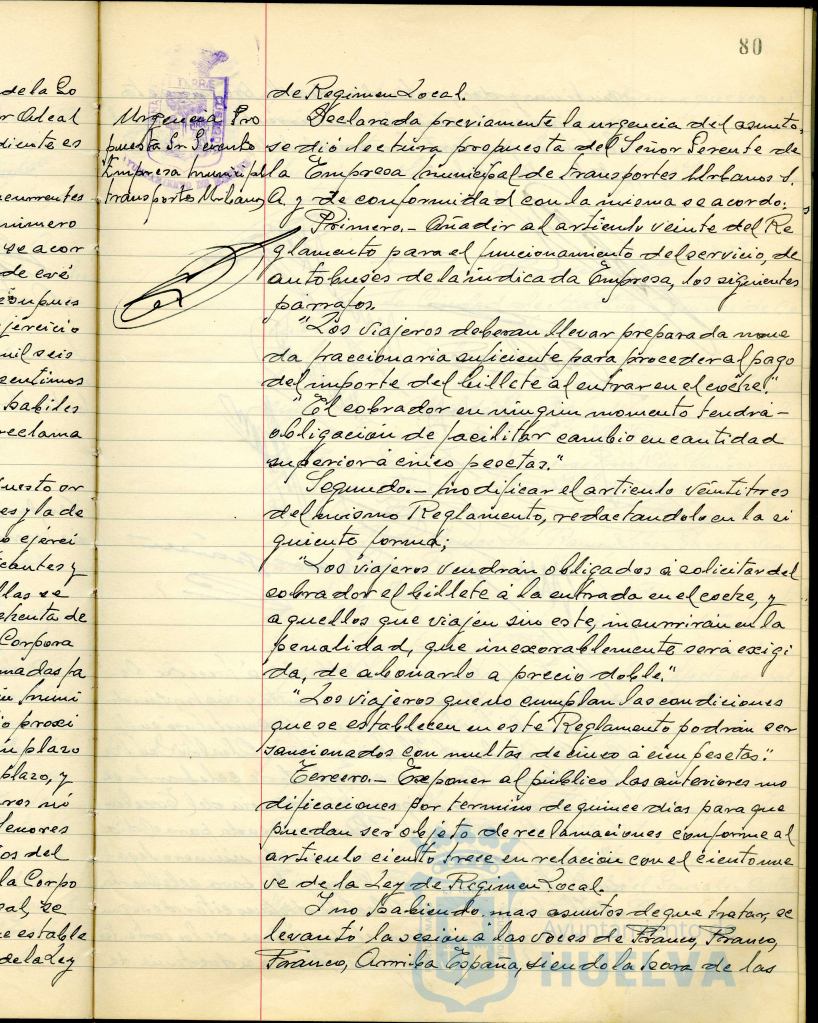 80
de la Co
r Ideal
diente es
ncurrentes
nimero
se acor
de evé
ejercicio
mil seis
sentimos
habiles
reclama
uesto or
es y la de
o ejerci
icantes y
llas se
chenta de
Corpora
madas pa
io proxi
n plazo
plazo, y
Señores
os del
la Corpo
e estable
de la Ley
Urgencia Pro
puesta Sr Gerente
Empresa municipl
transportes Urbanos
de Regimen Local.
Declarada previamente la urgencia del asunto,
se dió lectura propuesta del Señor Gerente de
la Empresa Municipal de transportes Urbanos S.
A. y de conformidad con la misma se acordo:
Primero.- Añadir al articulo veinte del Re
glamento para el funcionamiento del servicio, de
autobuses de la indicada Empresa, los siguientes
párrafos.
"Los viajeros deberan llevar preparada mone
da fraccionaria suficiente para proceder al pago
del importe del billete al entrar en el coche."
"El cobrador en ningún momento tendrá-
obligación de facilitar cambio en cantidad
superior á cinco pesetas."
Segundo.- Modificar el articulo veintitres
del mismo Reglamento, redactandolo en la si
guiente forma;
"Los viajeros vendrán obligados á solicitar del
cobrador el billete á la entrada en el coche, y
aquellos que viajen sin este, incurrirán en la
penalidad, que inexorablemente será exigi
da, de abonarlo a precio doble."
"Los viajeros que no cumplan las condiciones
que se establecen en este Reglamento podrán ser
sancionados con multas de cinco á cien pesetas."
Tercero.- Exponer al público las anteriores mo
dificaciones por termino de quince dias para que
puedan ser objeto de reclamaciones conforme al
articulo ciento trece en relación con el ciento nue
ve de la Ley de Regimen Local.
I no habiendo mas asuntos de que tratar, se
levantó la sesión a las voces de Franco, Franco,
Franco, Arriba España, siendo la hora de las
Ayuntamiento
HUELVA